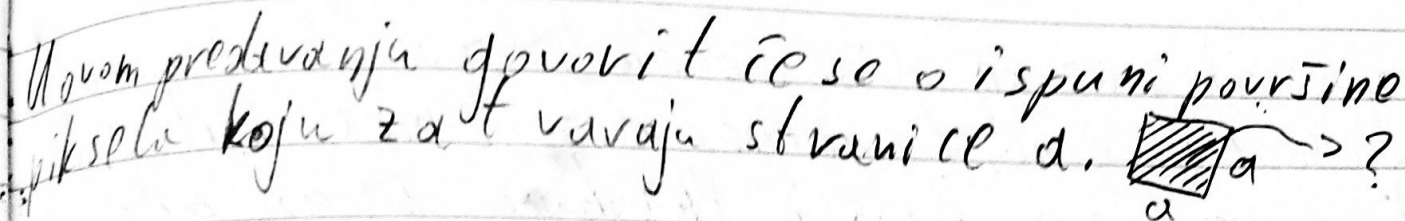 U ovom predavanju govorit će se o ispuni površine
piksela koju zatvaraju stranice a. a → ?
a